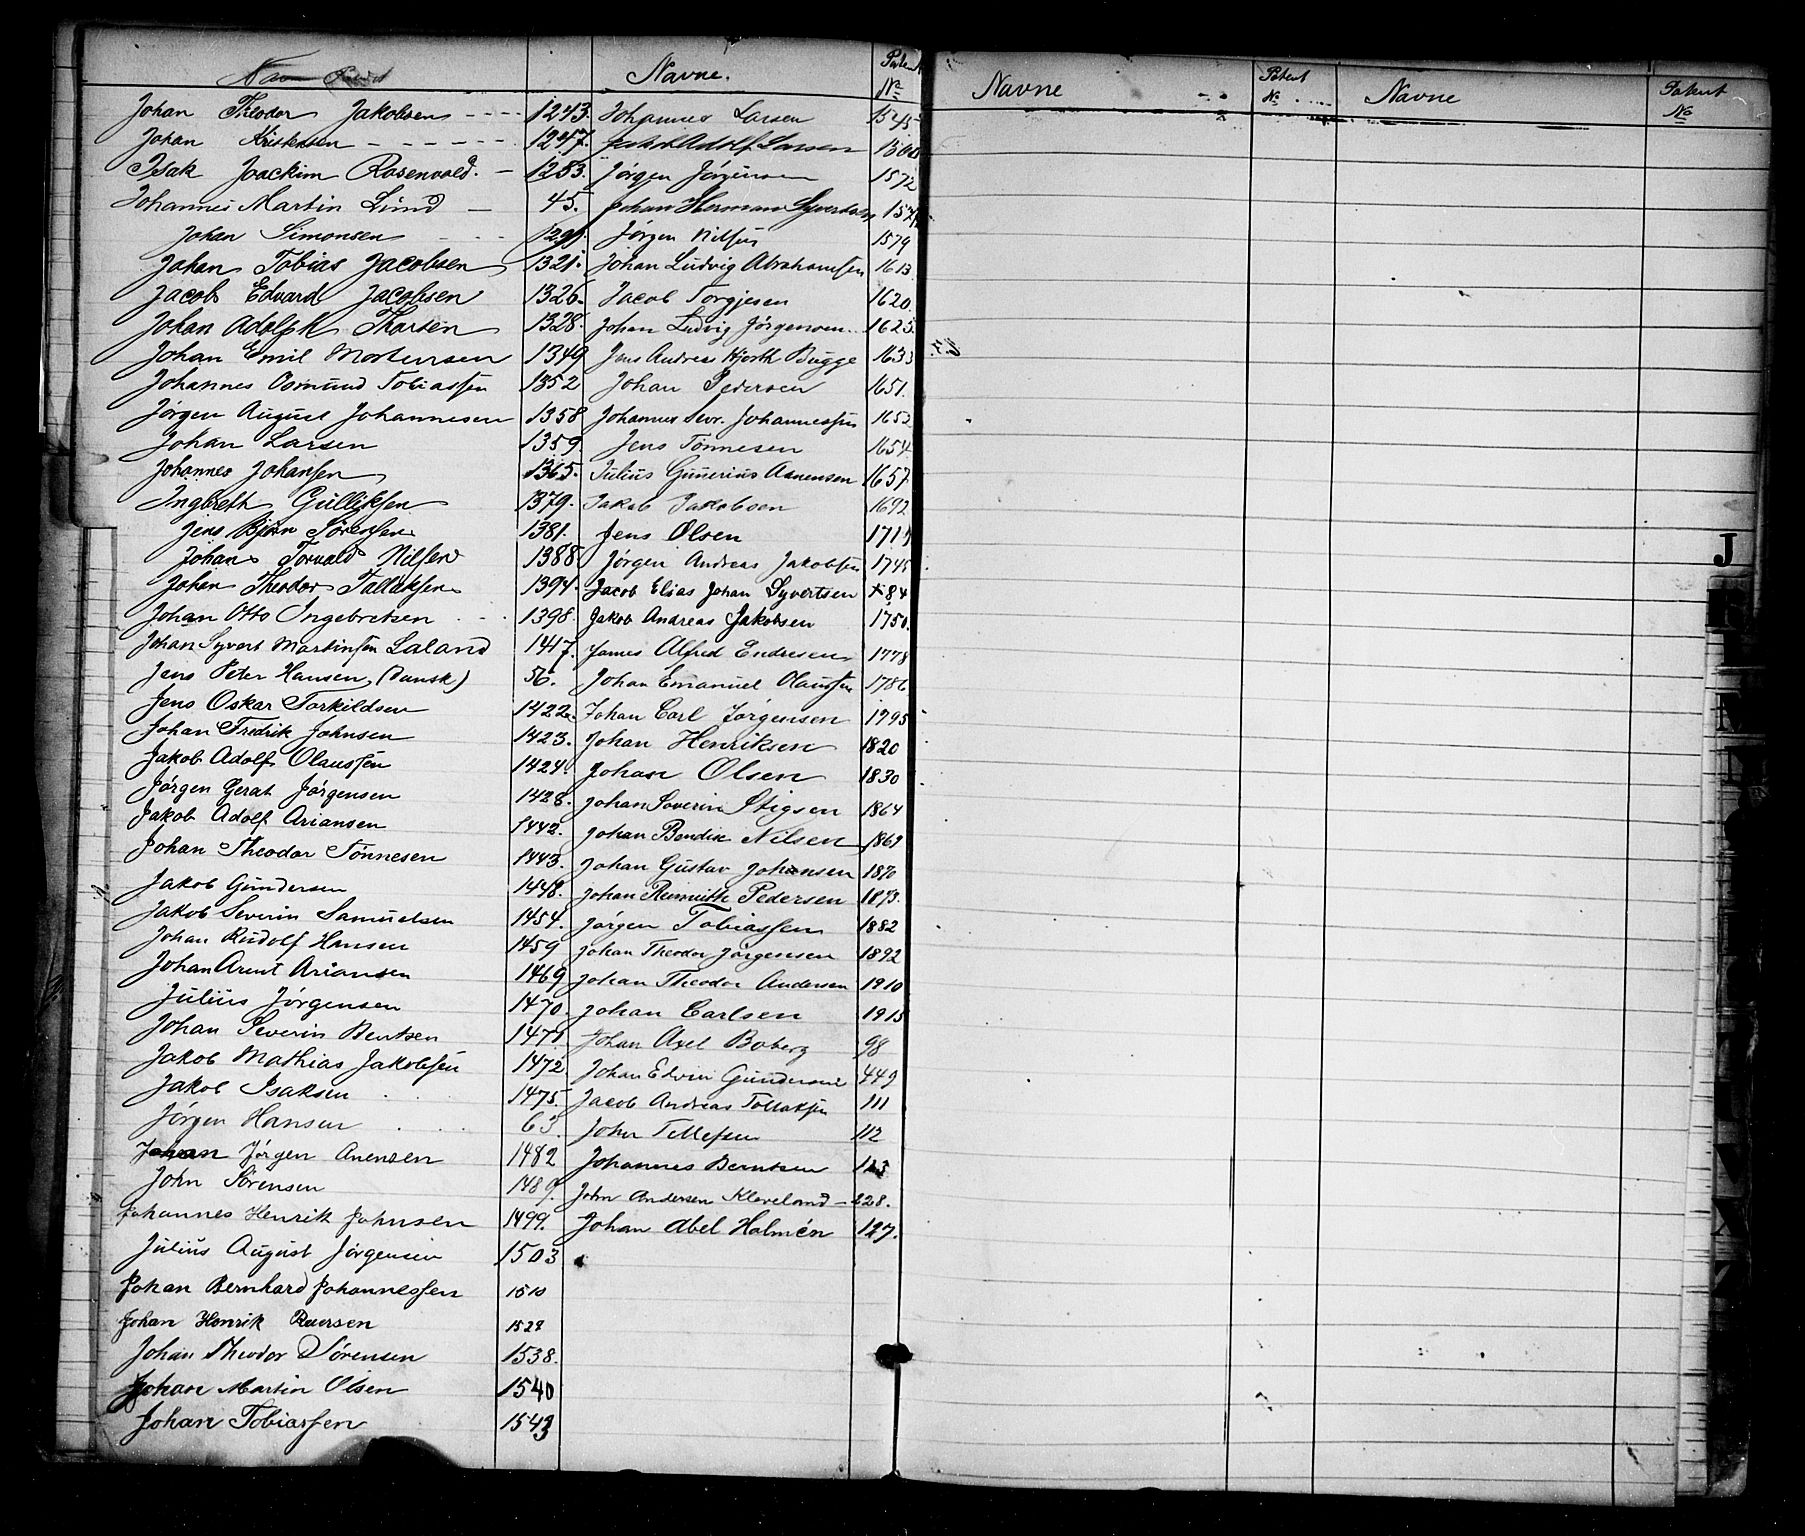 Navn Patent
Johan Theodor Jakobsen 1243.
Johan Kristensen 1247.
Isak Joackim Rosenvold. 1253.
Johannes Martin Lund 45.
Johan Simonsen
Johan Tobias Jacobsen 1321.
Jacob Edvard Jacobsen 1326.
Johan Adolph Thorsen 1328.
Johan Emil Mortensen 1349
Johannes Osmund Tobiassen 1352
Jørgen August Johannesen 1358
Johan Larsen 1359.
Johannes Johansen 1365.
Ingbreth Gulliksen 1379.
Jens Bjørn Sørensen 1381.
Johan Torvald Nilsen 1388.
Johan Theodor Tallaksen 1394.
Johan Otto Ingebretsen 1398.
Johan Syvert Martinsen Laland 1417.
Jens Peter Hansen (Dansk) 56.
Jens Oskar Torkildsen 1422.
Johan Fredrik Johnsen 1423.
Jakob Adolf Olaussen 1424.
Jørgen Gerat Jørgensen 1428.
Jakob Adolf Ariansen 1442.
Johan Theodor Tønnesen 1443.
Jakob Gundersen 1448.
Jakob Severin Samuelsen 1454.
Johan Rudolf Hansen 1459
Johan Arent Ariansen 1469
Julius Jørgensen 1470.
Johan Severin Bentsen 1471
Jakob Mathias Jakobsen 1472.
Jakob Isaksen 1475.
Jørgen Hansen 63.
Johan Jørgen Anensen 1482
John Sørensen 1489.
Johannes Henrik Johnsen 1499.
Julius August Jørgensen 1503
Johan Bernhard Johannessen 1510
Johan Henrik 1529
Johan Theodor Sørensen 1538.
Johan Martin Olsen 1540
Johan Tobiassen 1543
Navne. Patent No
Johannes Larsen 1545
Adolf Larsen
Jørgen Jørgensen 1572
Johan Herman Syvertsen
Jørgen Nilsen 1579
Johan Ludvig Abrahamsen 1613
Jacob Torgjesen 1620
Johan Ludvig Jørgensen 1625.
Jens Andreas Hjorth Bugge 1633
Johan Pedersen 1651.
Johannes Sevr. Johannessen 1653
Jens Tønnesen 1654
Julius Gunerius Aanensen 1657
Jakob Jakobsen 1692
Jens Olsen 1711
Jørgen Andreas Jakobsen 1745
Jacob Elias Johan Syvertsen +84
Jakob Andreas Jakobsen 1750.
James Alfred Endresen 1778
Johan Emanuel Olaussen 1786
Johan Carl Jørgensen 1795
Johan Henriksen 1820
Johan Olsen 1830
Johan Soverin Stigsen 1864
Johan Bendix Nilsen 1869
Johan Gustav Johansen 1870
Johan Pedersen 1873.
Jørgen Tobiassen 1882
Johan Theodor Jørgensen 1892
Johan Theodor Andersen 1910
Johan Carlsen 1915
Johan Axel Boberg 98
Johan Edvin Gundersen 449
Jacob Andreas Tollaksen 111
John Tellefsen 112
Johannes Berntsen 123
John Andersen Kleveland 228.
Johan Abel Holmén 127.
Navne Patent No Navne Patent No
J